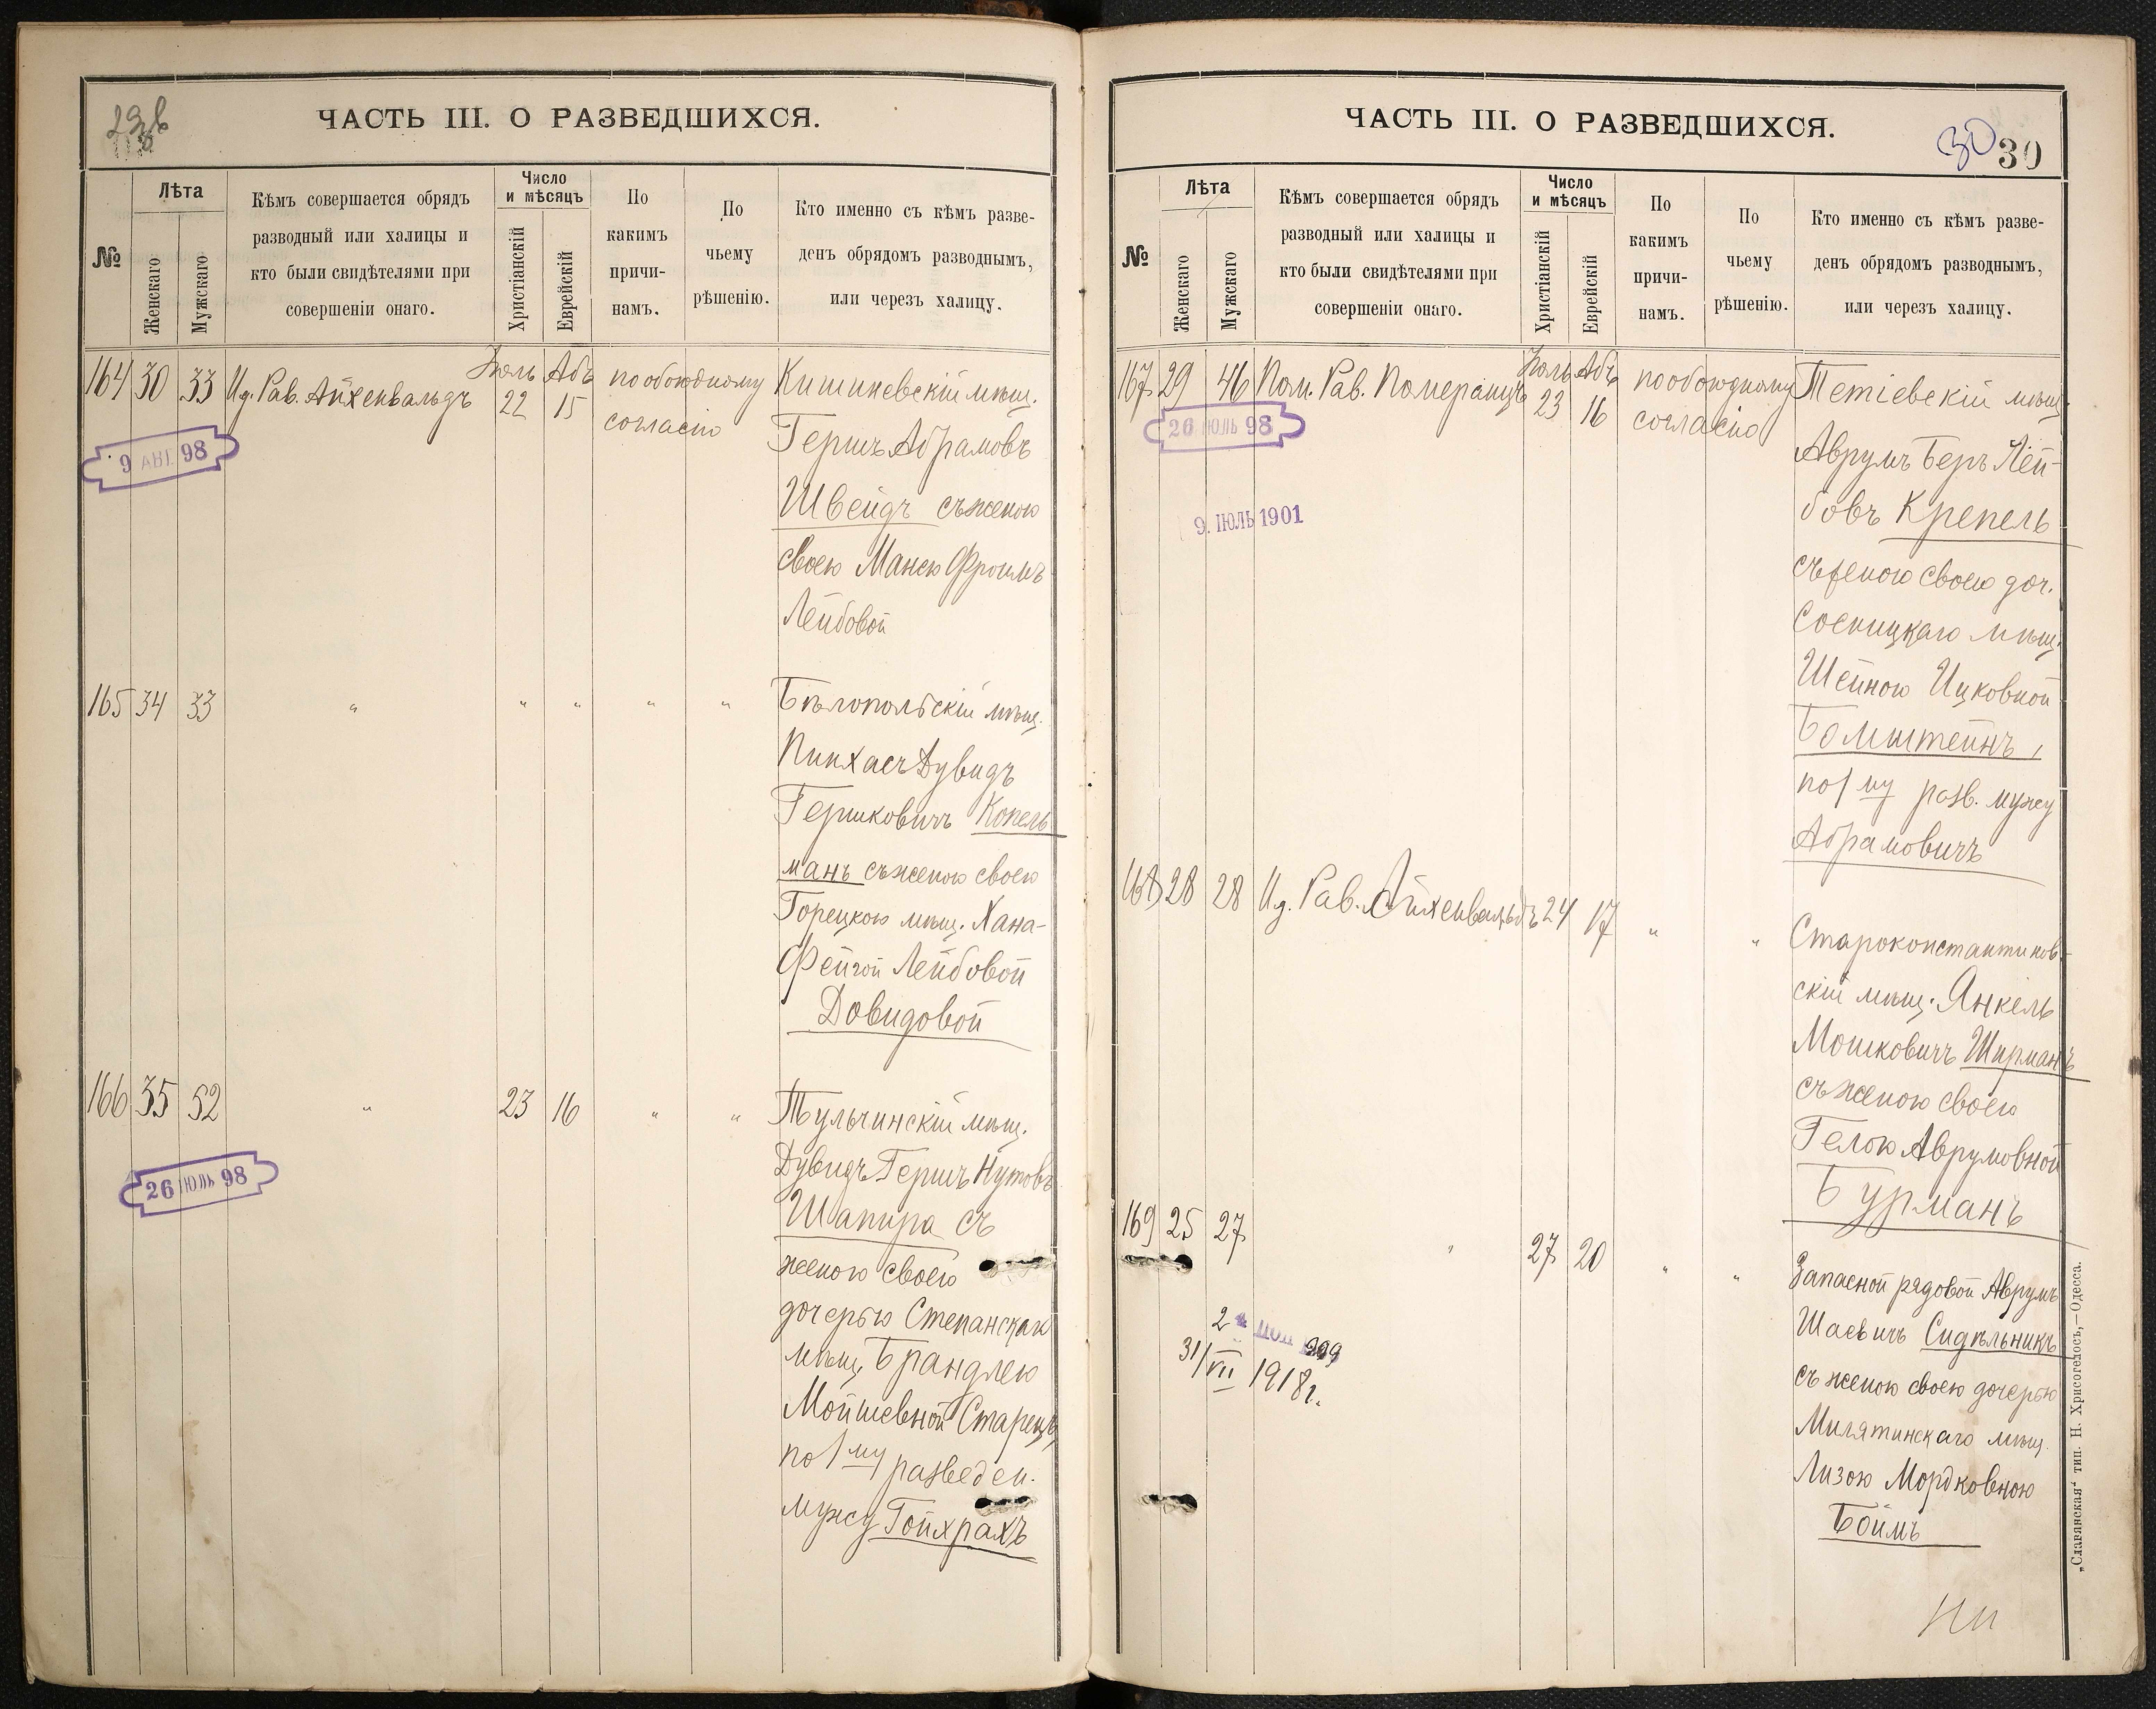 29 в
ЧАСТЬ III. О РАЗВЕДШИХСЯ.
№
Лѣта
Женскаго
Мужскаго
Кѣмъ совершается обрядъ
разводный или халицы и
кто были свидѣтелями при
совершеніи онаго.
Число
и мѣсяцъ
Христіанскій
Еврейскій
По
какимъ
причи-
намъ.
По
чьему
рѣшенію.
Кто именно съ кѣмъ разве-
денъ обрядомъ разводнымъ,
или черезъ халицу.
164 30 33 Ид. Рав. Айхенвальдъ Іюль 22 Абъ 15 по обоюдному
согласію
Кишиневскій мѣщ.
Гершъ Абрамовъ
Швейдъ съ женою
своею Манею Фроимъ
Лейбовой
9 АВГ. 98
165 34 33 " " " " "
Бѣлопольскій мѣщ.
Пинхасъ Дувидъ
Гершковичъ Копель
манъ съ женою своею
Горецкою мѣщ. Хана-
Фейгой Лейбовой
Довидовой
166 35 52 " 23 16 " "
Тульчинскій мѣщ.
Дувидъ Гершъ Нутовъ
Шапира съ
женою своею
дочерью Степанскаг
мѣщ. Брандлею
Мойшевной Старецъ,
по 1му разведен.
мужу Гойхрахъ
26 ІЮЛЬ 98
ЧАСТЬ III. О РАЗВЕДШИХСЯ.
30 30
№
Лѣта
Женскаго
Мужскаго
Кѣмъ совершается обрядъ
разводный или халицы и
кто были свидѣтелями при
совершеніи онаго.
Число
и мѣсяцъ
Христіанскій
Еврейскій
По
какимъ
причи-
намъ.
По
чьему
рѣшенію.
Кто именно съ кѣмъ разве-
денъ обрядомъ разводнымъ,
или черезъ халицу.
167 29 46 Пом. Рав. Померанцъ Іюль 23 Абъ 16 по обоюдному
согласію
Тетіевскій мѣщ.
Аврумъ Беръ Лей-
бовъ Крепель
съ женою своею доч.
Сосницкаго мѣщ.
Шейною Ицковной
Бомштейнъ,
по 1му разв. мужу
Абрамовичъ
26 ІЮЛЬ 98
9. ІЮЛЬ 1901
168 28 28 Ид. Рав. Айхенвальдъ 24 17 " "
Староконстантинов-
скій мѣщ. Янкель
Мошковичъ Ширманъ
съ женою своею
Гелою Аврумовной
Бурманъ
169 25 27 " 27 20 " "
Запасной рядовой Аврумъ
Шаевичъ Сидѣльникъ
съ женою своею дочерью
Милятинскаго мѣщ.
Лизою Мордковною
Боймъ
31/VII 1918 г.
„Славянская“ тип. Н. Хрисогелосъ,—Одесса.